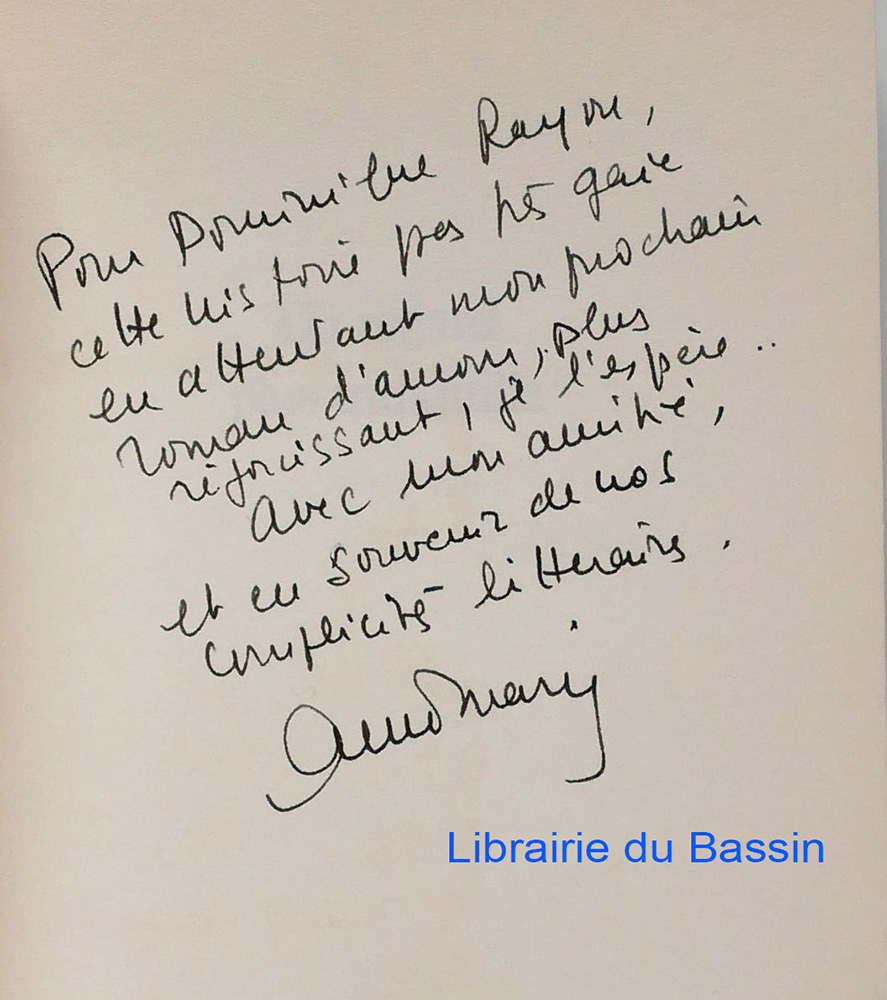 Pour Dominique Rayon,
cette histoire pas très gaie
en attendant mon prochain
roman d'amour, plus
réjouissant, je l'espère..
Avec mon amitié,
et en souvenir de nos
complicités littéraires.
Librairie du Bassin